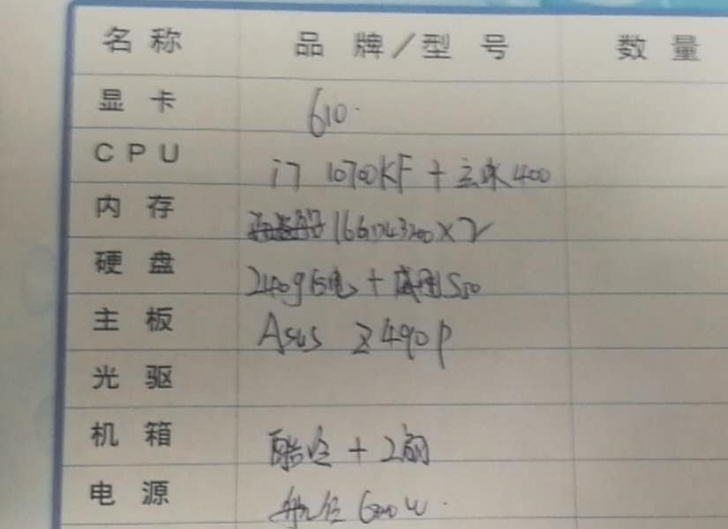 名称 品牌/型号 数量
显卡 610.
CPU i7 10700KF + 玄冰400
内存 16G D4 3200×2
硬盘 240g 西电 + S50
主板 Asus z490p
光驱
机箱 酷冷 + 2扇
电源 600W.